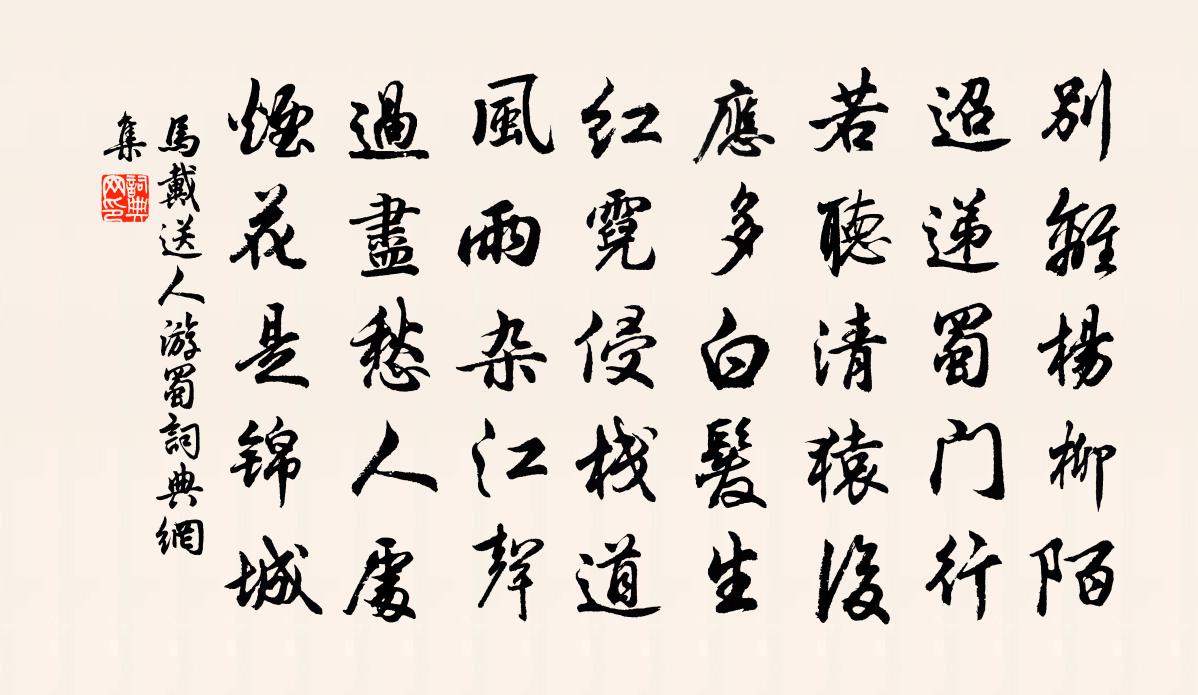 別離楊柳陌
迢递蜀门行
若聴清猿後
應多白髮生
红霓侵栈道
風雨杂江聲
過盡愁人處
煙花是锦城
馬戴送人游蜀詞典網
集
詞典
网印